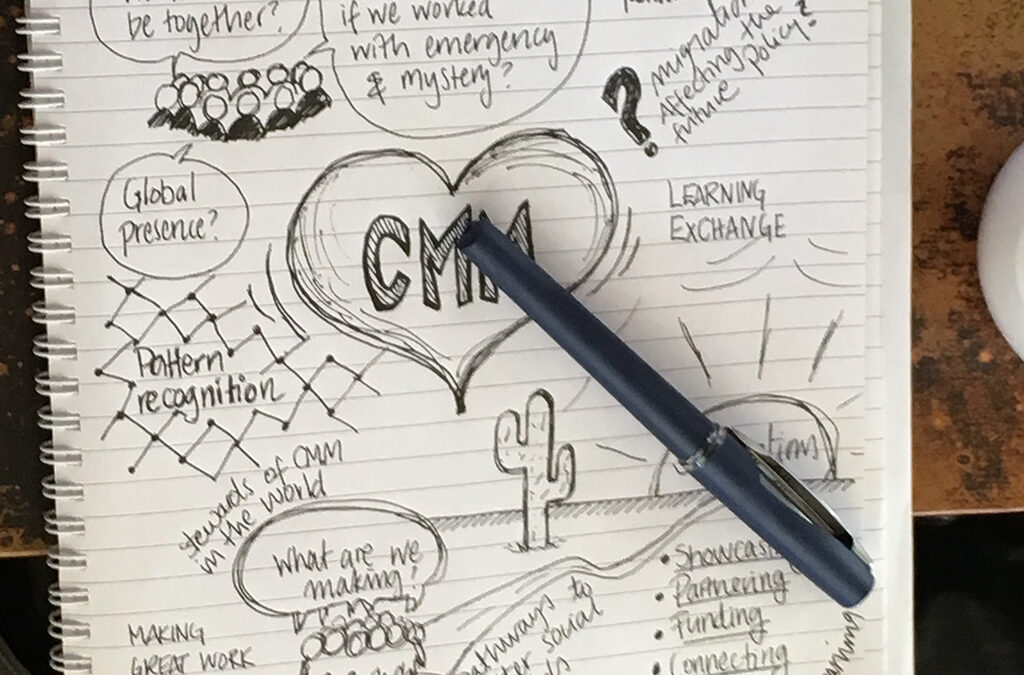 be together?
if we worked
with emergency
& mystery?
migration
Affecting the
future policy?
Global
presence?
CMM
LEARNING
EXCHANGE
Pattern
recognition
stewards of CMM
in the world
What are we
making?
MAKING
GREAT WORK
pathways to
social
• Showcasing
• Partnering
• Funding
• Connecting